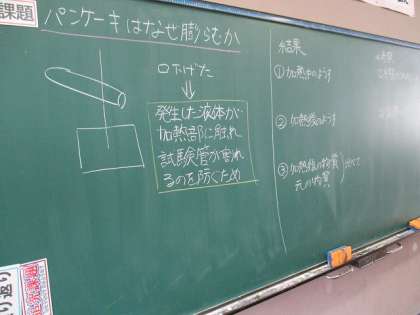 課題
パンケーキはなぜ膨らむか
口下げた
発生した液体が
加熱部に触れ
試験管が割れ
るのを防ぐため
結果
①加熱中のようす
②加熱後のようす
③加熱後の物質
元の物質
比べて
り返り